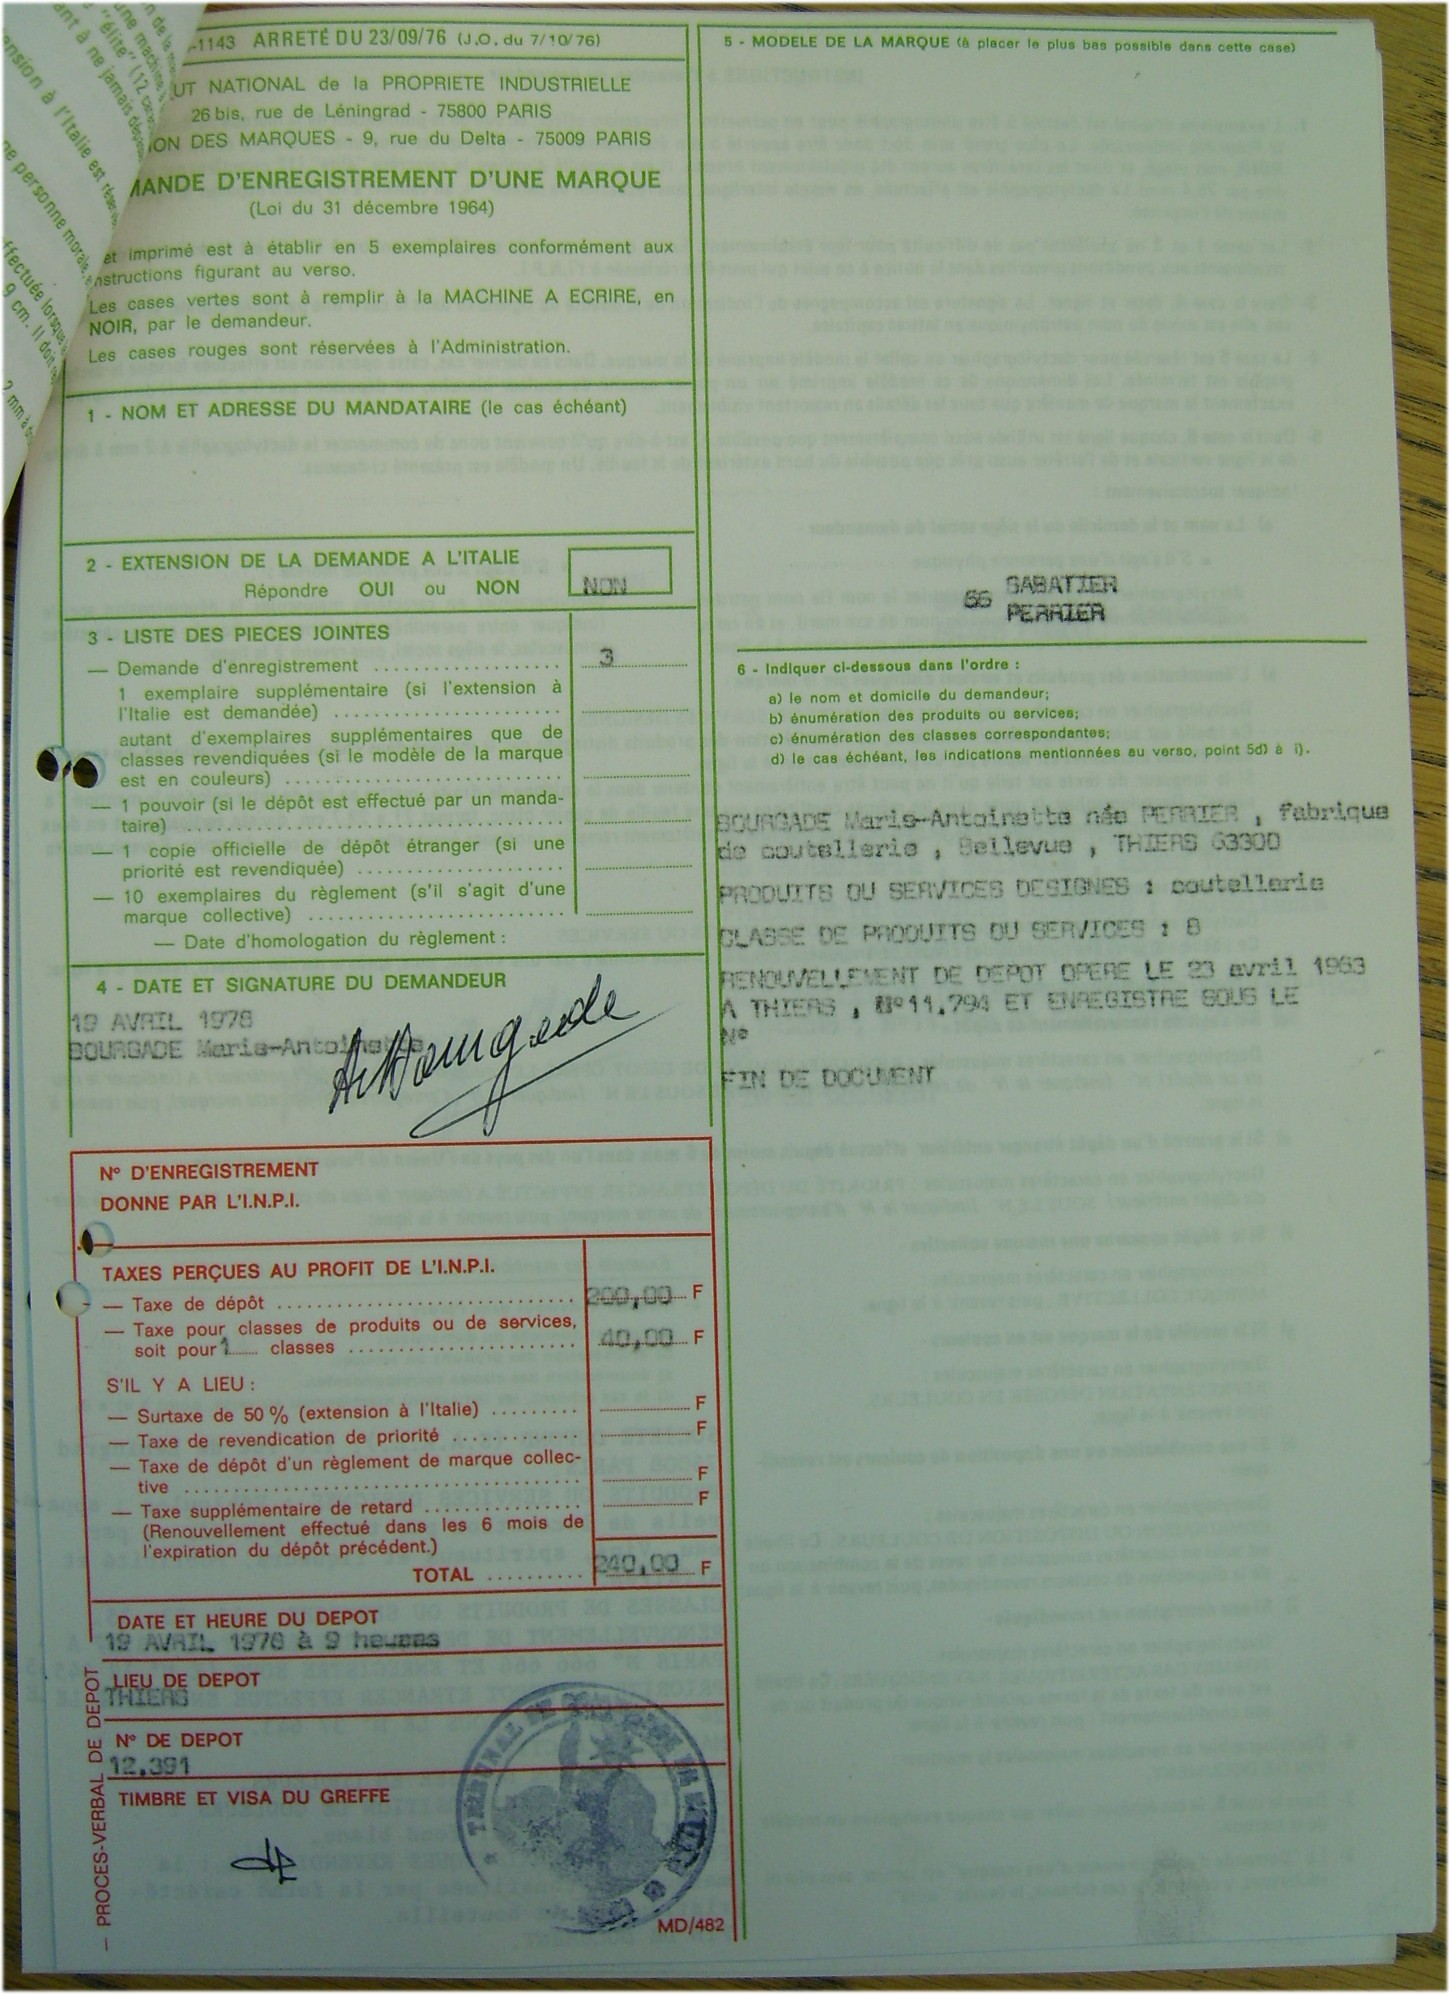 -1143 ARRETÉ DU 23/09/76 (J.O. du 7/10/76)
UT NATIONAL de la PROPRIETE INDUSTRIELLE
26 bis, rue de Léningrad - 75800 PARIS
ION DES MARQUES - 9, rue du Delta - 75009 PARIS
MANDE D'ENREGISTREMENT D'UNE MARQUE
(Loi du 31 décembre 1964)
et imprimé est à établir en 5 exemplaires conformément aux
instructions figurant au verso.
Les cases vertes sont à remplir à la MACHINE A ECRIRE, en
NOIR, par le demandeur.
Les cases rouges sont réservées à l'Administration.
1 - NOM ET ADRESSE DU MANDATAIRE (le cas échéant)
2 - EXTENSION DE LA DEMANDE A L'ITALIE
Répondre OUI ou NON
NON
3 - LISTE DES PIECES JOINTES
— Demande d'enregistrement
3
1 exemplaire supplémentaire (si l'extension à
l'Italie est demandée)
autant d'exemplaires supplémentaires que de
classes revendiquées (si le modèle de la marque
est en couleurs)
— 1 pouvoir (si le dépôt est effectué par un manda-
taire)
— 1 copie officielle de dépôt étranger (si une
priorité est revendiquée)
— 10 exemplaires du règlement (s'il s'agit d'une
marque collective)
— Date d'homologation du règlement :
4 - DATE ET SIGNATURE DU DEMANDEUR
19 AVRIL 1978
BOURGADE Marie-Antoinette
N° D'ENREGISTREMENT
DONNE PAR L'I.N.P.I.
TAXES PERÇUES AU PROFIT DE L'I.N.P.I.
— Taxe de dépôt 200,00 F
— Taxe pour classes de produits ou de services,
soit pour 1 classes 40,00 F
S'IL Y A LIEU :
— Surtaxe de 50 % (extension à l'Italie) F
— Taxe de revendication de priorité F
— Taxe de dépôt d'un règlement de marque collec-
tive F
— Taxe supplémentaire de retard F
(Renouvellement effectué dans les 6 mois de
l'expiration du dépôt précédent.)
TOTAL 240,00 F
— PROCES-VERBAL DE DEPOT
DATE ET HEURE DU DEPOT
19 AVRIL 1978 à 9 heures
LIEU DE DEPOT
THIERS
N° DE DEPOT
12.391
TIMBRE ET VISA DU GREFFE
MD/482
5 - MODELE DE LA MARQUE (à placer le plus bas possible dans cette case)
SABATIER
PERRIER
6 - Indiquer ci-dessous dans l'ordre :
a) le nom et domicile du demandeur;
b) énumération des produits ou services;
c) énumération des classes correspondantes;
d) le cas échéant, les indications mentionnées au verso, point 5d) à i).
BOURGADE Marie-Antoinette née PERRIER , fabrique
de coutellerie , Bellevue , THIERS 63300
PRODUITS OU SERVICES DESIGNES : coutellerie
CLASSE DE PRODUITS OU SERVICES : 8
RENOUVELLEMENT DE DEPOT OPERE LE 23 avril 1963
A THIERS , N°11.794 ET ENREGISTRE SOUS LE
N°
FIN DE DOCUMENT